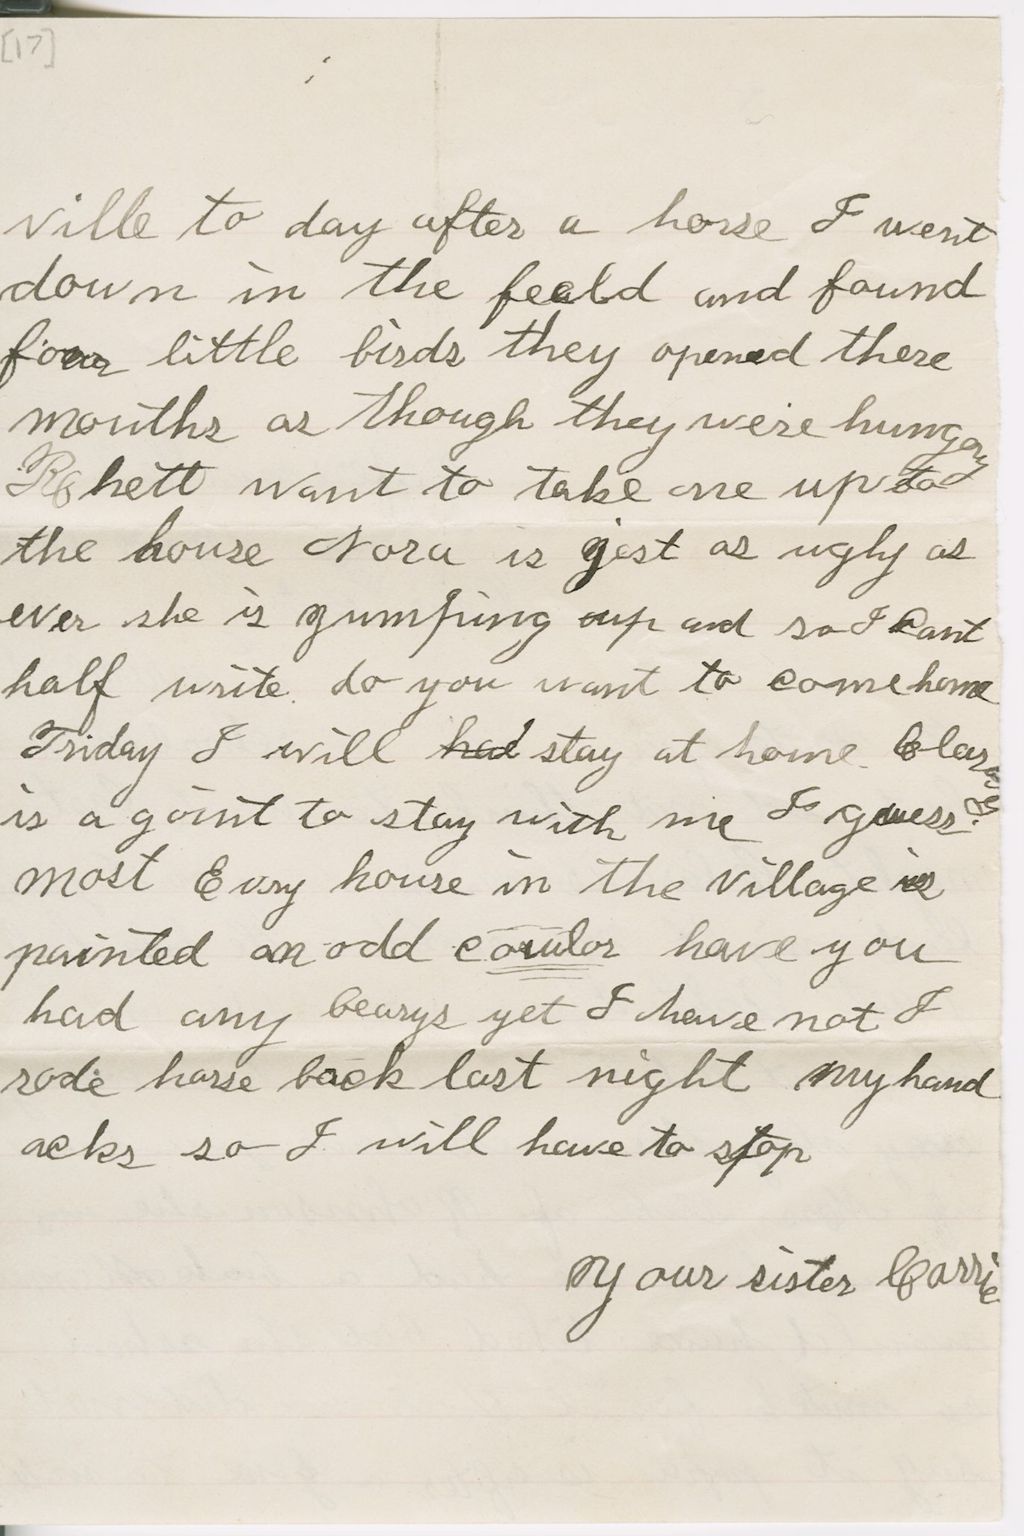 [17]
ville to day after a horse I went
down in the feald and found
four little birds they opened there
mouths as though they were hungry
Rhett want to take one up to
the house Nora is jest as ugly as
ever she is yumping up and so I cant
half write. do you want to come home
Friday I will had stay at home.
is a goint to stay with me I guess.
most Evry house in the village is
painted an odd coulor have you
had any bearys yet I have not I
rode horse back last night My hand
acks so I will have to stop
Your sister Carrie